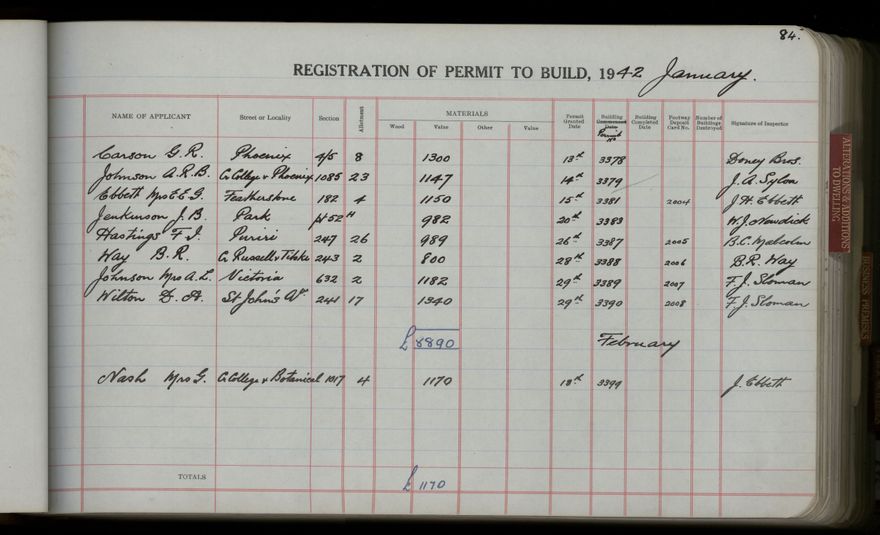 84.
REGISTRATION OF PERMIT TO BUILD, 1942 January.
NAME OF APPLICANT Street or Locality Section Allotment MATERIALS Wood Value Other Value Permit Granted Date Building Commenced Date Permit No Building Completed Date Footway Deposit Card No. Number of Buildings Destroyed Signature of Inspector
Carson G. R. Phoenix 4/5 8 1300 13th 3378 Doney Bros.
Johnson A. R. B. Cr College & Phoenix 1085 23 1147 14th 3379 J. A. Sylon
Ebbeth Mrs E E G. Featherstone 182 4 1150 15th 3381 2004 J. H. Ebbeth
Jenkinson J. B. Park 452 982 20th 3383 W. J.
Hastings F. J. Puriri 247 26 989 26th 3387 2005 B. C. Malcolm
Way B. R. Cr Russell & 243 2 800 28th 3388 2006 B. R. Way
Johnson Mrs A. L. Victoria 632 2 1182 29th 3389 2007 F. J. Sloman
Wilton D. A. St John's Av. 241 17 1340 29th 3390 2008 F. J. Sloman
£ 8890 February
Nash Mrs G. Cr College & Botanical 1017 4 1170 18th 3399 J. Ebbeth
TOTALS £ 1170
ALTERATIONS & ADDITIONS TO DWELLING
BUSINESS PREMISES